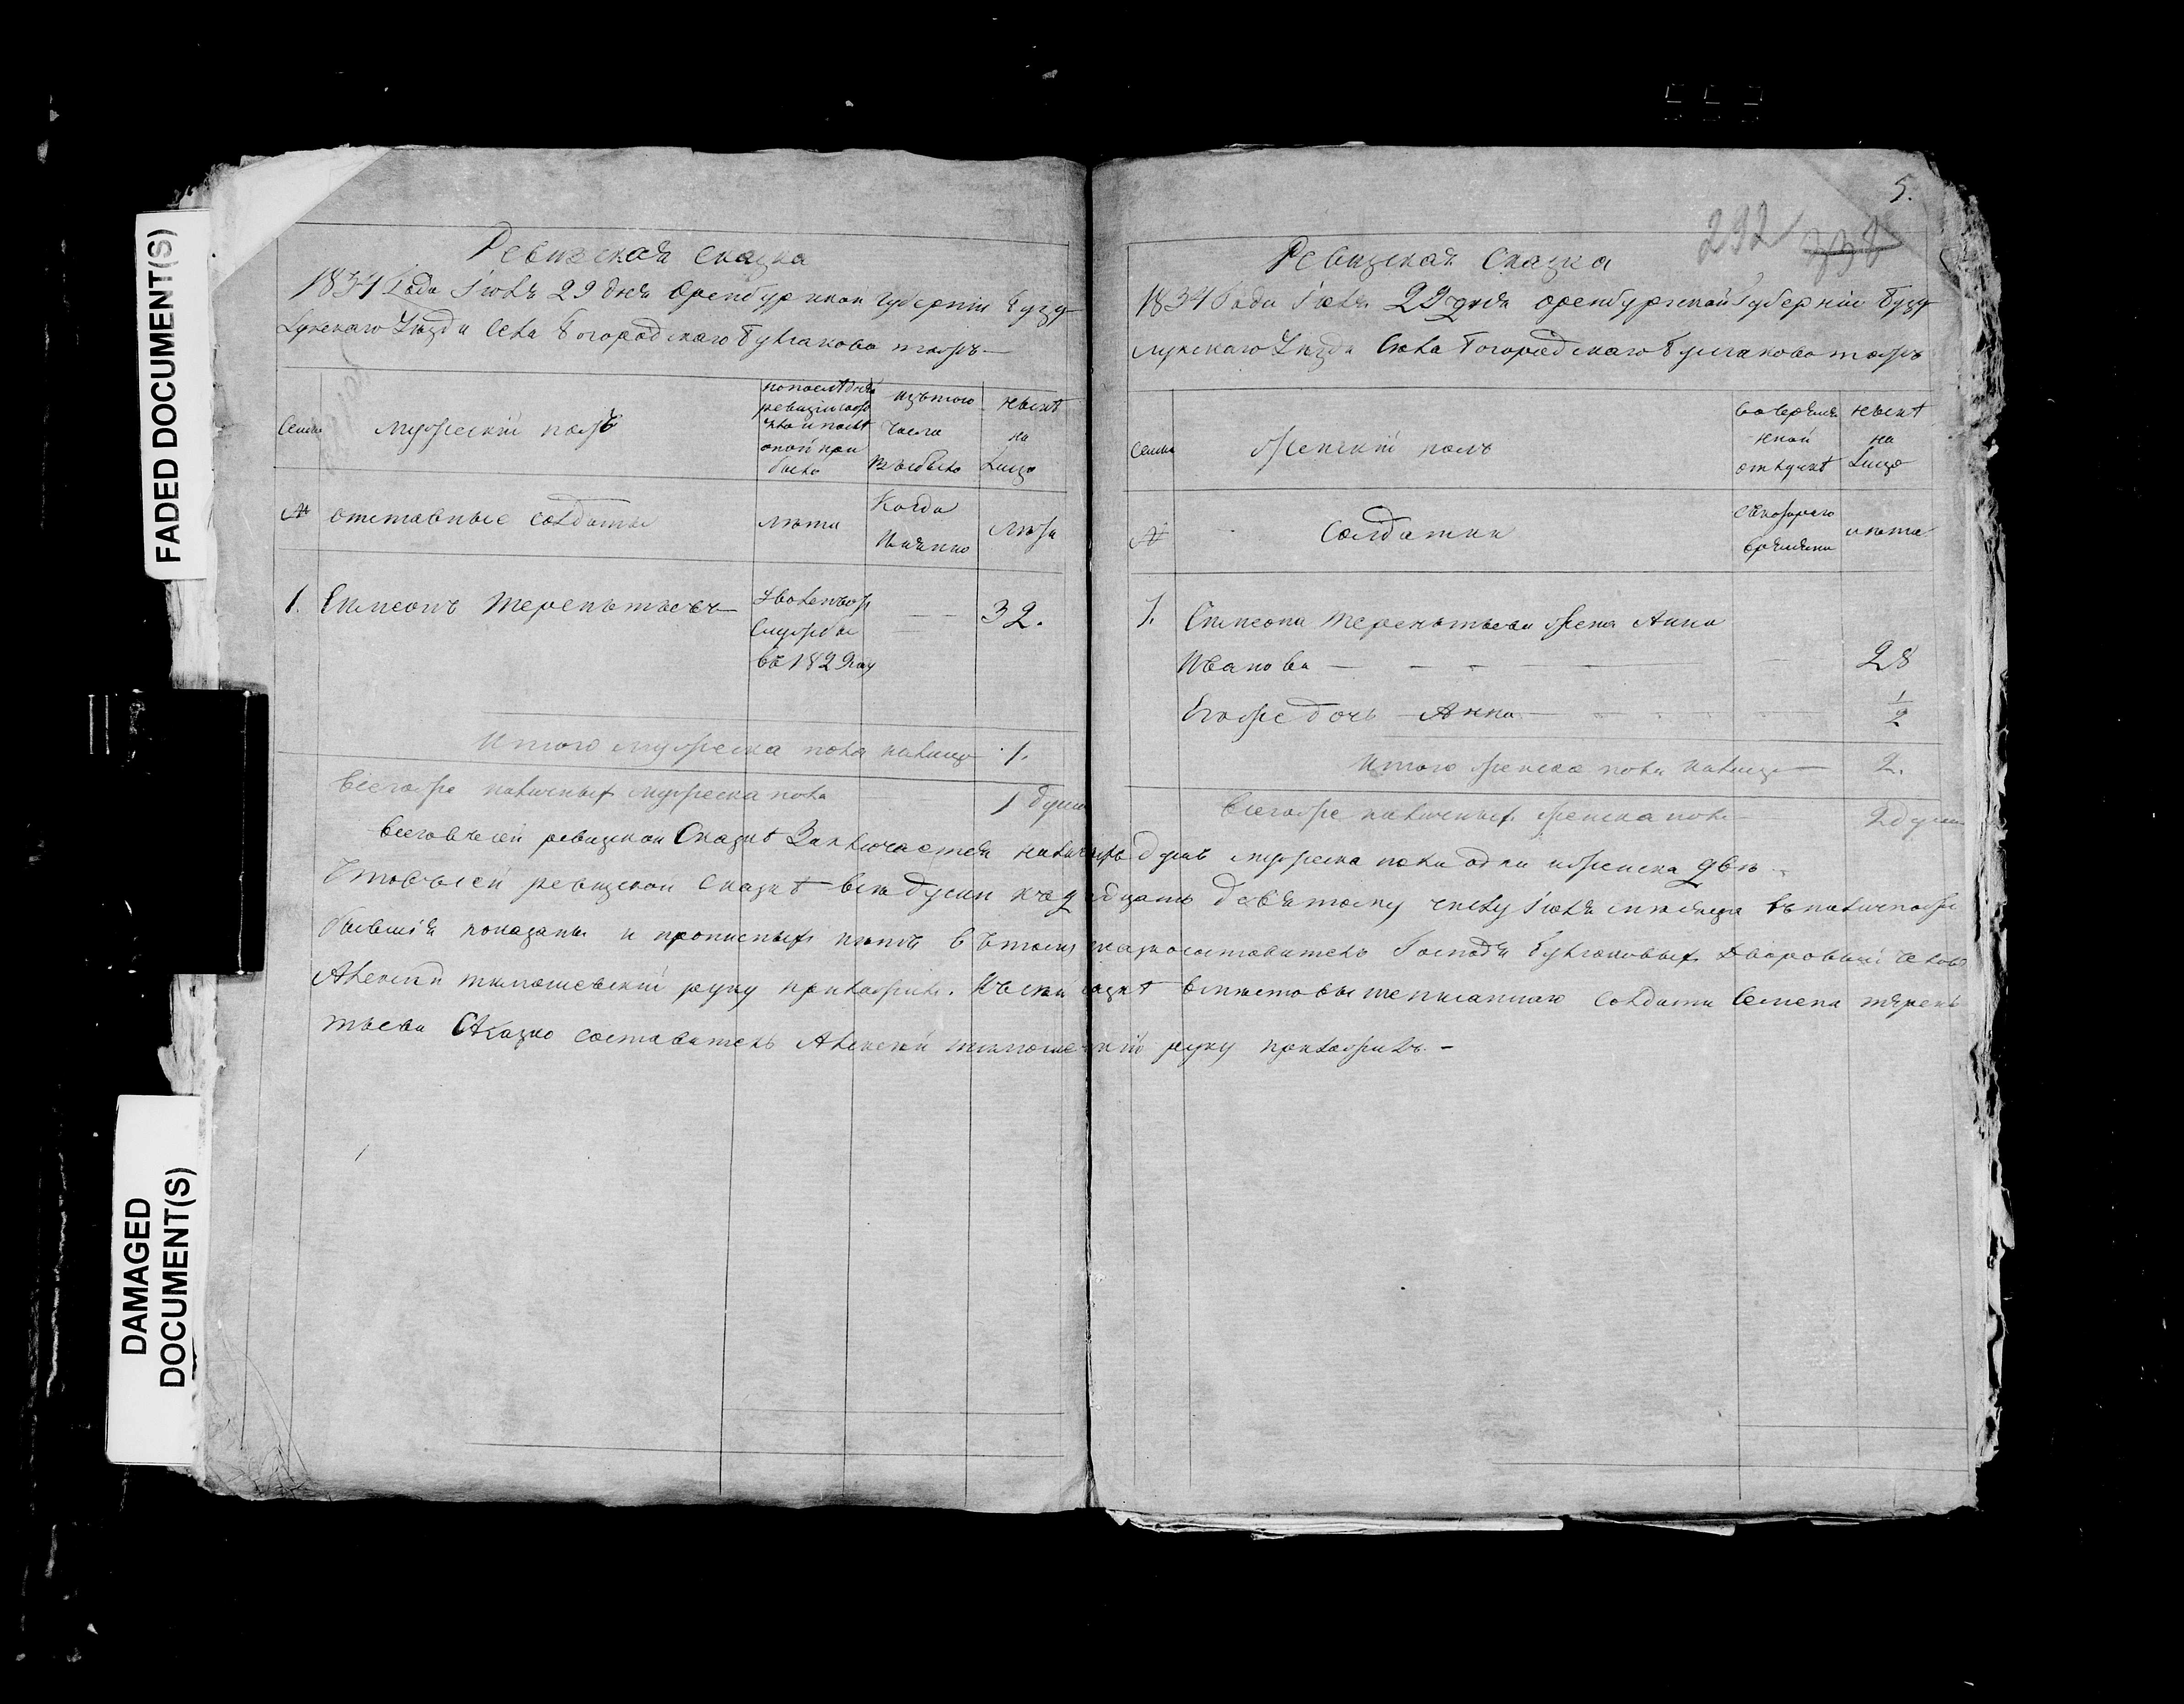 FADED DOCUMENT(S)
DAMAGED
DOCUMENT(S)
Ревизская сказка
1834 Года Іюля 29 дня Оренбургской Губерніи Бузу
лукскаго Уѣзда Села Богородскаго Булгаково тожъ
Семьи
мужескій полъ
по последней
ревизіи состо
яло и после
оной при
было
изъ того
числа
выбыло
нынѣ
на
лицо
№
отставные солдаты
лѣта
Когда
именно
лѣта
1. Симеонъ Терентьевъ
уволенъ от
службы
въ 1829 году
32.
Итого мужеска пола налицо 1.
Всегоже наличныхъ мужеска пола 1 душа
5.
292
Ревизская Сказка
1834 Года Іюля 29 дня Оренбургской Губерніи Бузу
лукскаго Уѣзда Села Богородскаго Булгаково тожъ
Семьи
женскій полъ
во временной
отлучке
нынѣ
на
лицо
№
Солдатки
съ котораго
времени
лѣта
1. Симеона Терентьева жена Анна
Иванова 28
Егоже дочь Анна 1/2
Итого женска пола налицо 2.
Всегоже наличныхъ женска пола 2 души
Всего въ сей ревизской Сказке Заключается наличныхъ душъ мужеска пола одна и женска две
Что въ сей ревизской сказке все души къ двадцать девятому числу Іюля месяца въ наличности
бывшія показаны и прописныхъ нѣтъ въ томъ сказкосоставитель Господъ Булгаковыхъ Дворовый чело
Алексей руку приложилъ. Къ сей сказке вместо вышеписаннаго солдата Семена терень
тьева Сказко составитель Алексей руку приложилъ.